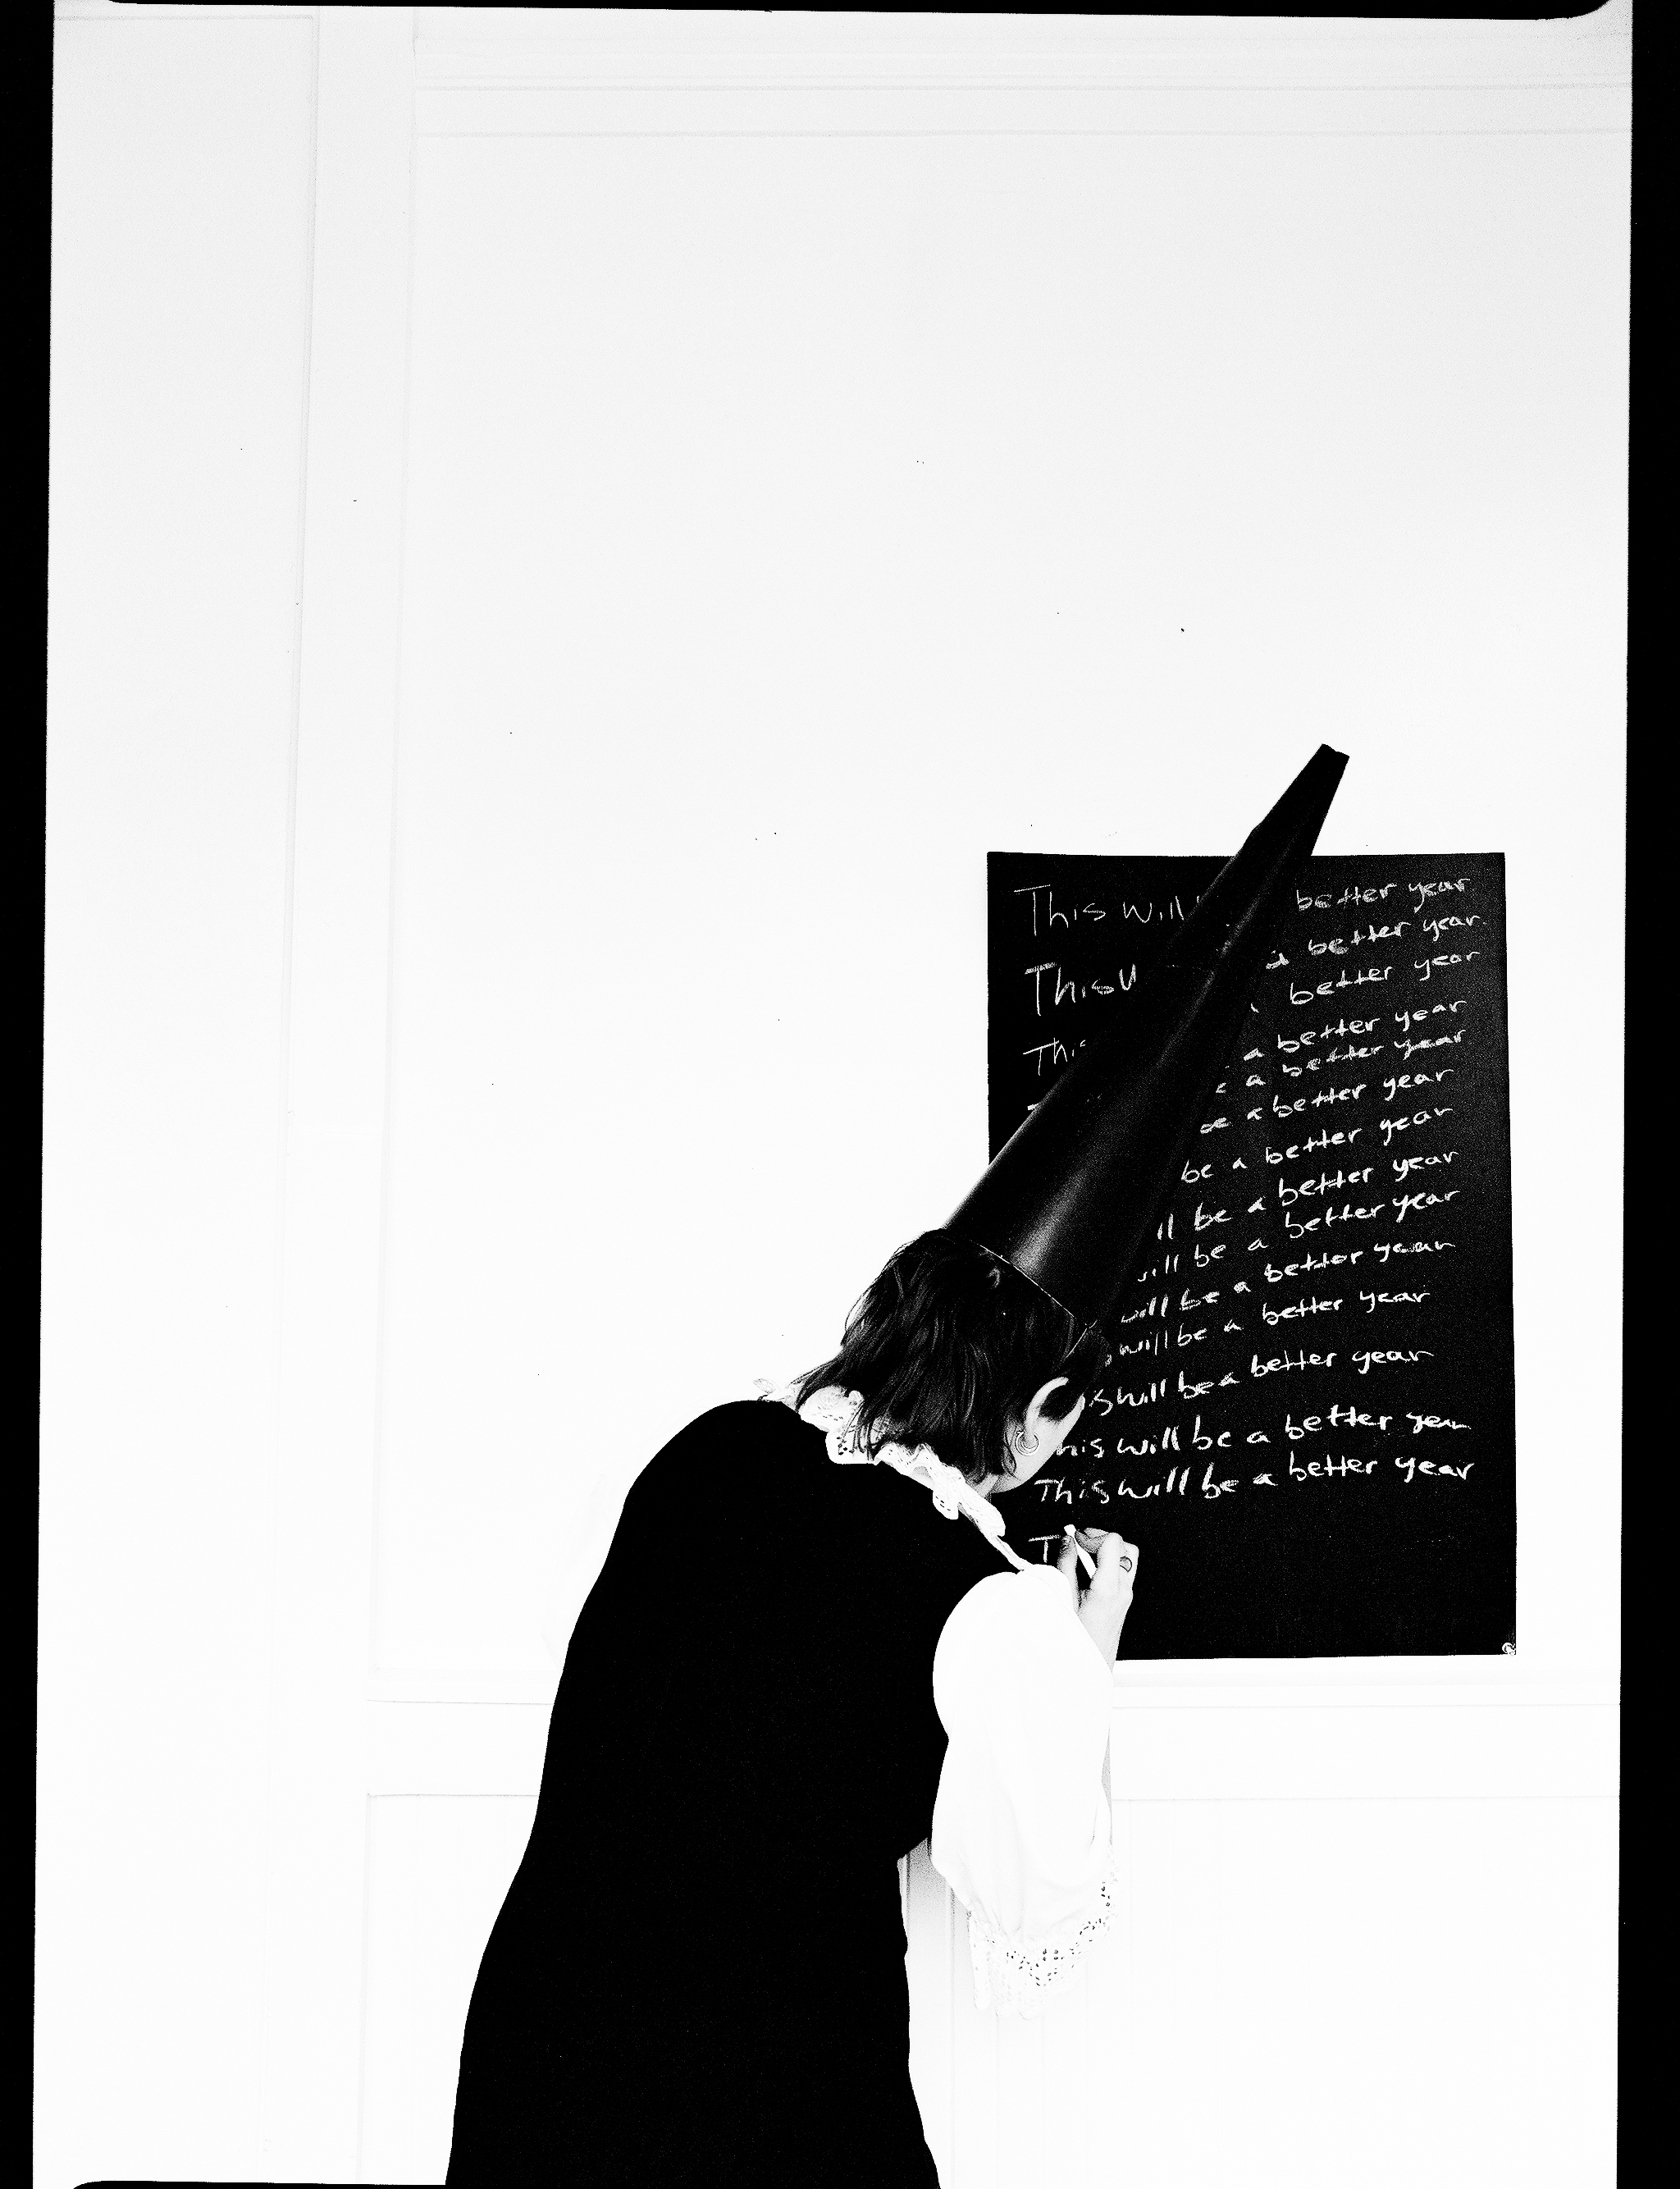 This will better year
This a better year.
This better year
a better year
a better year
be a better year
be a better year
be a better year
will be a better year
will be a better year
will be a better year
will be a better year
This will be a better year
This will be a better year
T